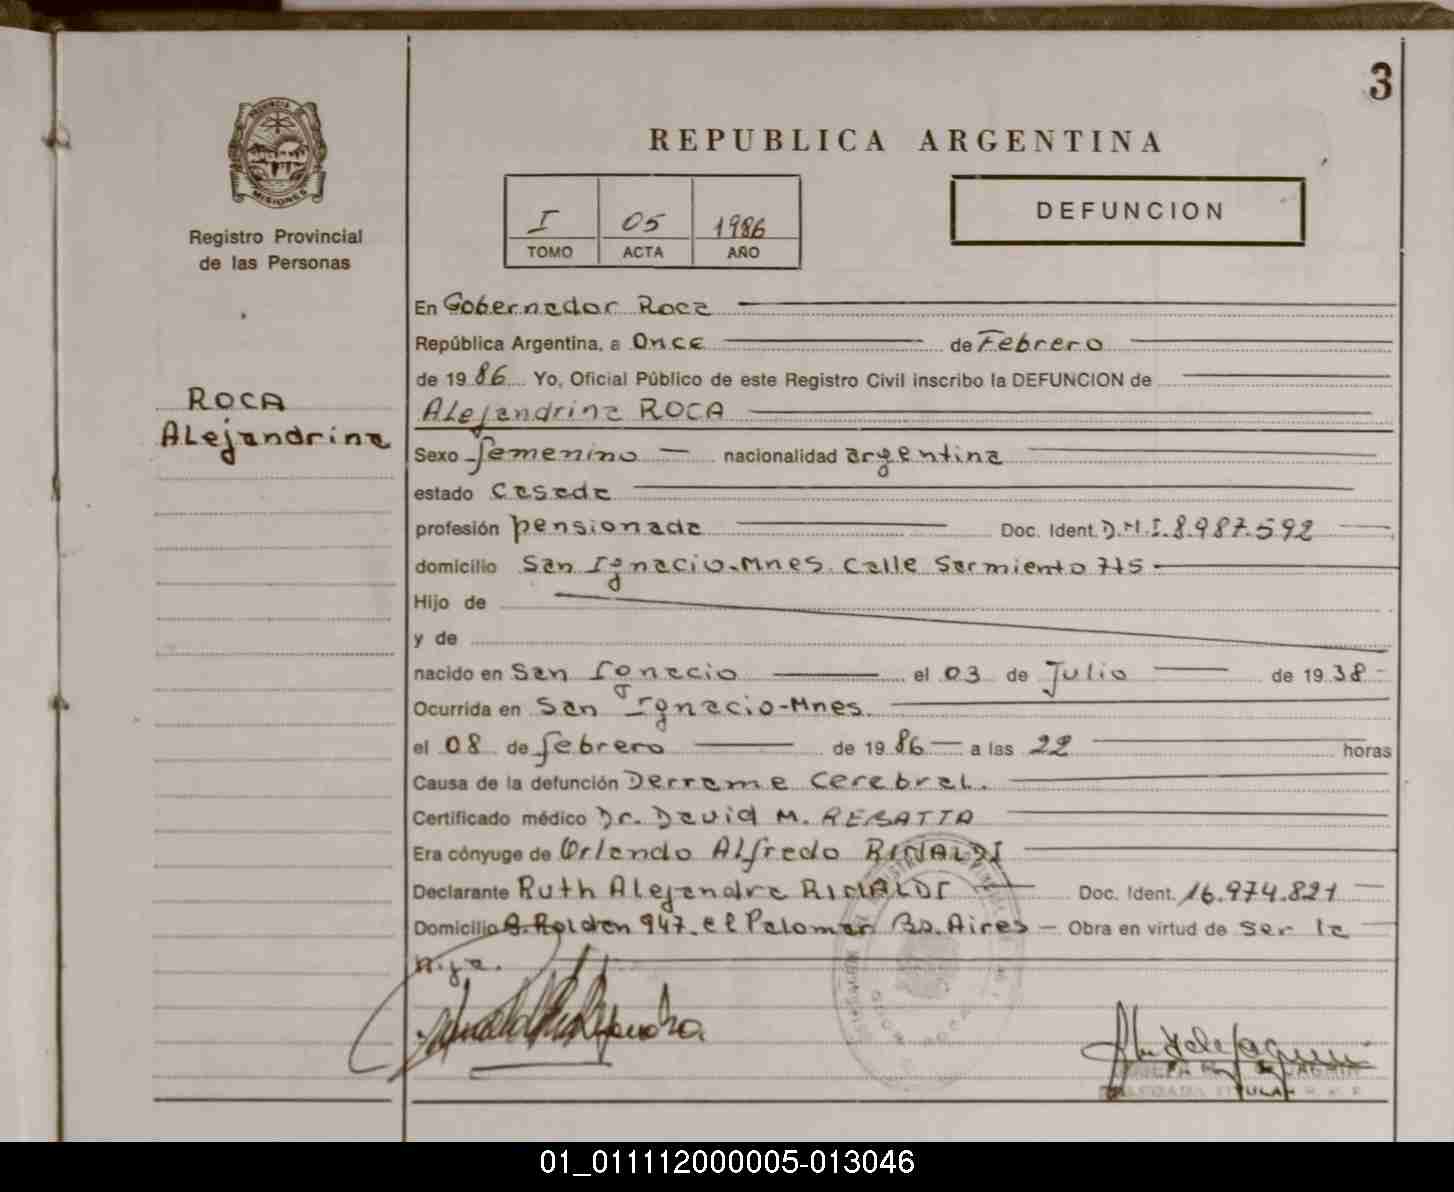 3
REPUBLICA ARGENTINA
PROVINCIA
MISIONES
Registro Provincial
de las Personas
I 05 1986
TOMO ACTA AÑO
DEFUNCION
ROCA
Alejandrina
En Gobernador Roca
República Argentina, a Once de Febrero
de 1986 Yo, Oficial Público de este Registro Civil inscribo la DEFUNCION de
Alejandrina ROCA
Sexo femenino nacionalidad argentina
estado casada
profesión pensionada Doc. Ident. D.M.I. 8.987.592
domicilio San Ignacio-Mnes. Calle Sarmiento
Hijo de
y de
nacido en San Ignacio el 03 de Julio de 1938
Ocurrida en San Ignacio-Mnes.
el 08 de febrero de 1986 a las 22 horas
Causa de la defunción Derrame Cerebral.
Certificado médico Dr. David M. REBATTA
Era cónyuge de Orlando Alfredo RINALDI
Declarante Ruth Alejandra RINALDI Doc. Ident. 16.974.821
Domicilio 947. el Palomar Bs. Aires - Obra en virtud de ser la
hija.
01_011112000005-013046